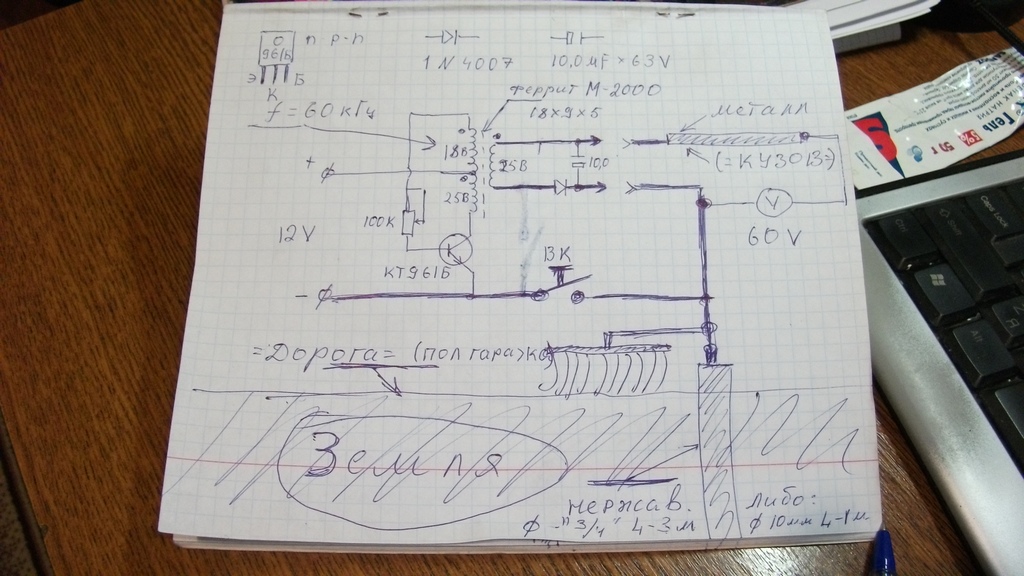 О
961Б
n p-n
Э Б
К
1N4007
10,0 MF × 63V
феррит М-2000
18×9×5
f = 60 кГц
металл
(=КУЗОВ=)
18В
25В
25В
10,0
+
100К
12V
КТ961Б
V
60V
ВК
-
=Дорога= (пол гаража)
Земля
нержав.
ф - "3/4" 4-3м
либо:
ф 10мм 4-1м
Гель
50 г
Caps Lock